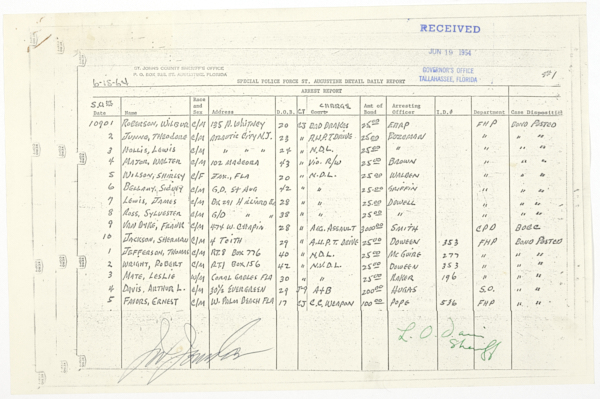 RECEIVED
JUN 19 1964
GOVERNOR'S OFFICE
TALLAHASSEE, FLORIDA
ST. JOHNS COUNTY SHERIFF'S OFFICE
ST. AUGUSTINE, FLORIDA
6-15-64 SPECIAL POLICE FORCE ST. AUGUSTINE DETAIL DAILY REPORT
ARREST REPORT
Date Name Race and Sex Address D.O.B. CJ CHARGE Amt of Bond Arresting Officer I.D.# Department Case Disposition
10901 ROBERSON, WILBUR C/M 185 N. WHITNEY 20 CJ BAD BRAKES 25.00 FHP BOND POSTED
2 THEODORE C/M ATLANTIC CITY N.J. 23 " 25.00 BOZEMAN " " "
3 HOLLIS, LEWIS C/M " " " 24 " N.D.L. 25.00 " " " "
4 MAJOR, WALTER C/M 102 MADEORA 43 " VIO. R/W 25.00 BROWN " " "
5 WILSON, SHIRLEY C/F JAX, FLA 20 " N.D.L. 25.00 WALDEN " " "
6 BELLAMY, SIDNEY C/M G.D. ST AUG 42 " " 25.00 GRIFFIN " " "
7 LEWIS, JAMES C/M 28 " " 25.00 DOWELL " " "
8 ROSS, SYLVESTER C/M G/D " " 38 " " 25.00 " " " "
9 VAN DYKE, FRANK C/M 574 W. CHAPIN 28 " AGG. ASSAULT 3000.00 SMITH CPD BOCC
10 JACKSON, SHERMAN C/M 4 TOITH 29 " DRIVE 25.00 DOWEEN 353 FHP BOND POSTED
1 JEFFERSON, THOMAS C/M RT 8 BOX 776 40 " N.D.L. 25.00 MCGUIRE 277 " " "
2 WRIGHT, ROBERT C/M RT 1 BOX 156 42 " N.V.D.L. 25.00 DOWEEN 353 " " "
3 MATE, LESLIE W/M CORAL GABLES FLA 30 " " 25.00 BAKER 196 " " "
4 DAVIS, ARTHUR L. C/M 30½ EVERGREEN 29 A+B 200.00 HUGAS S.O. " "
5 FAVORS, ERNEST C/M W. PALM BEACH FLA 17 CJ C.C. WEAPON 100.00 POPE 536 FHP " "
L. O. Davis
Sheriff